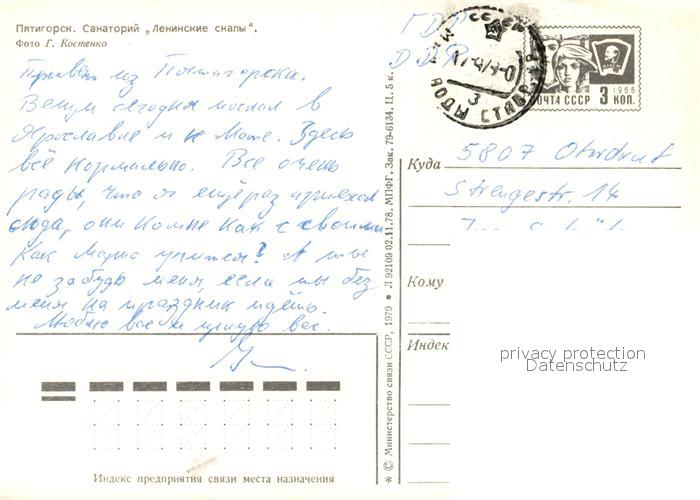 Пятигорск. Санаторий „Ленинские скалы".
Фото Г. Костенко
Привет из Пятигорска.
Вещи сегодня послал в
Ярославле и к Маше. Здесь
всё нормально. Все очень
рады, что я ещё раз приехал
сюда, они ко мне как с своими
Как Марио учится? А ты
не забудь меня, если вы без
меня на праздник идёте.
Люблю вас и целую вас.
Индекс предприятия связи места назначения
* © Министерство связи СССР, 1979 • Л 92109 02.11.78. МПФГ. Зак. 79-6134. Ц. 5 к.
ГДР
DDR
СССР
МИН
ВОДЫ СТАВР.
3
ПОЧТА СССР 3 КОП.
1966
Куда 5807 Ohrdruf
Strengestr. 14
Кому
Индек
privacy protection
Datenschutz